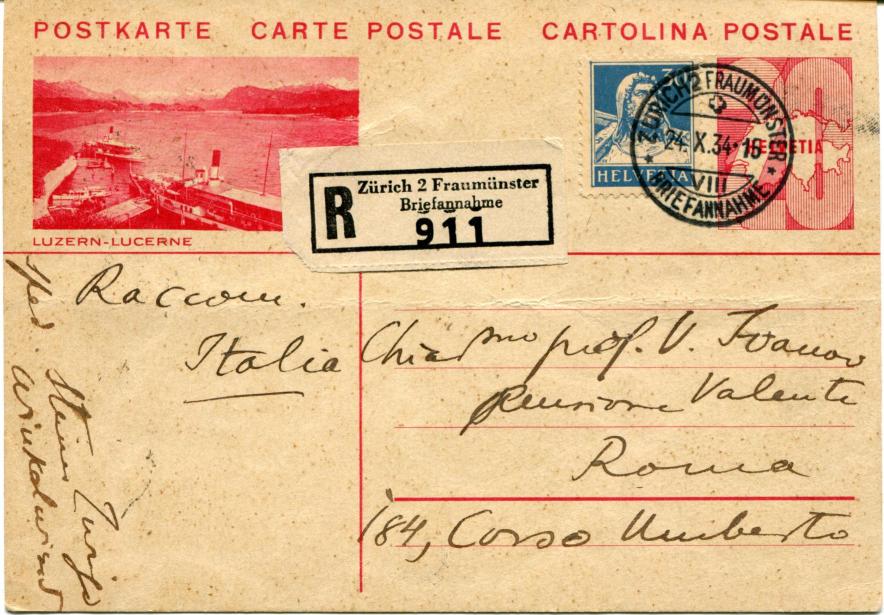 POSTKARTE CARTE POSTALE CARTOLINA POSTALE
LUZERN-LUCERNE
R
Zürich 2 Fraumünster
Briefannahme
911
HELVETIA
ZÜRICH 2 FRAUMÜNSTER
24.X.34-16
VIII
* BRIEFANNAHME *
HELVETIA
30
Raccom.
Italia
Chiadmo prof. V. Ivanov
Pensione Valente
Roma
184, Corso Umberto
Sped.
Steiner